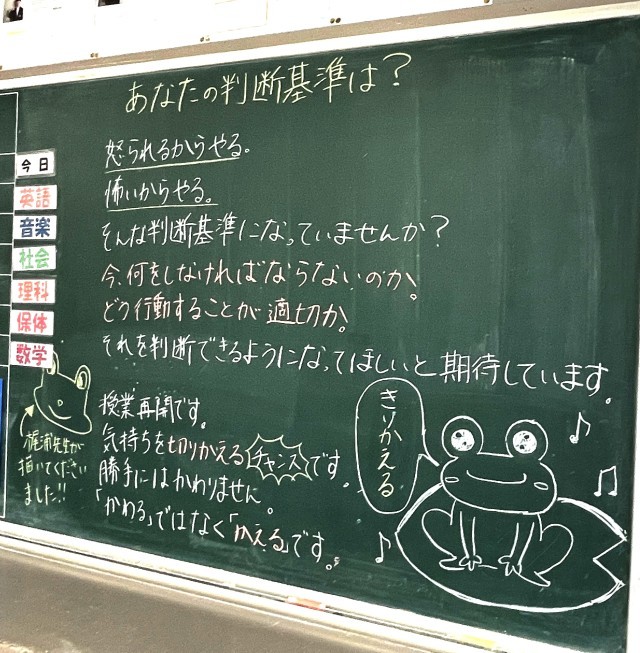 あなたの判断基準は?
怒られるからやる。
怖いからやる。
そんな判断基準になっていませんか?
今、何をしなければならないのか。
どう行動することが適切か。
それを判断できるようになってほしいと期待しています。
授業再開です。
気持ちを切りかえるチャンスです。
勝手にはかわりません。
「かわる」ではなく「かえる」です。
きりかえる
今日
英語
音楽
社会
理科
保体
数学
梶浦先生が
描いてください
ました!!